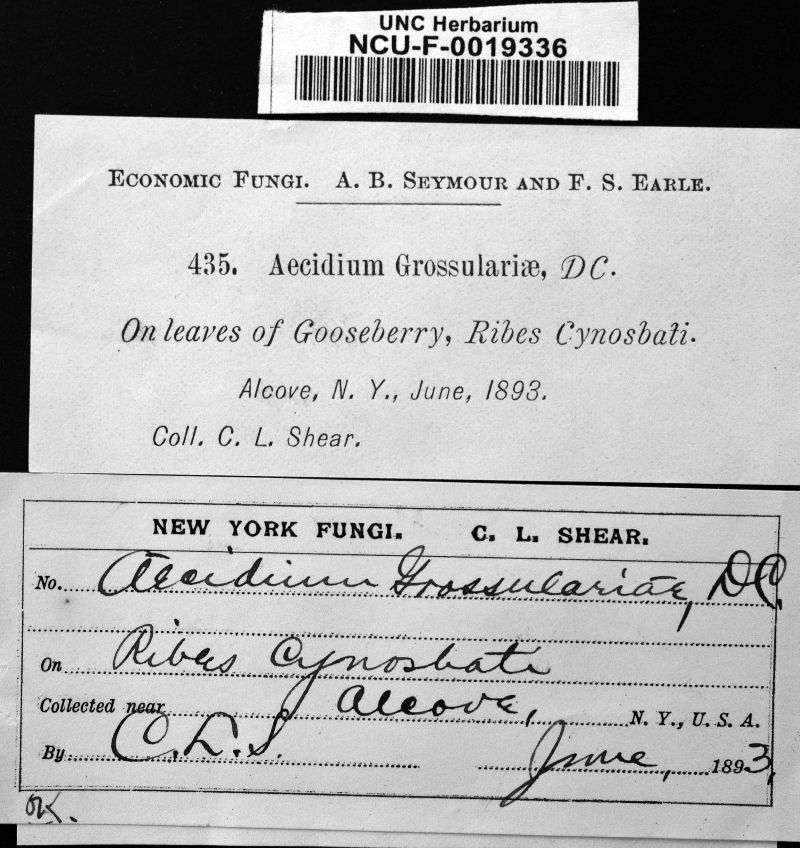 UNC Herbarium
NCU-F-0019336
ECONOMIC FUNGI. A. B. SEYMOUR AND F. S. EARLE.
435. Aecidium Grossulariæ, DC.
On leaves of Gooseberry, Ribes Cynosbati.
Alcove, N. Y., June, 1893.
Coll. C. L. Shear.
NEW YORK FUNGI. C. L. SHEAR.
No. Aecidium Grossulariae, DC.
On Ribes Cynosbati
Collected near Alcove, N. Y., U. S. A.
By C. L. S. June, 1893,
OK.